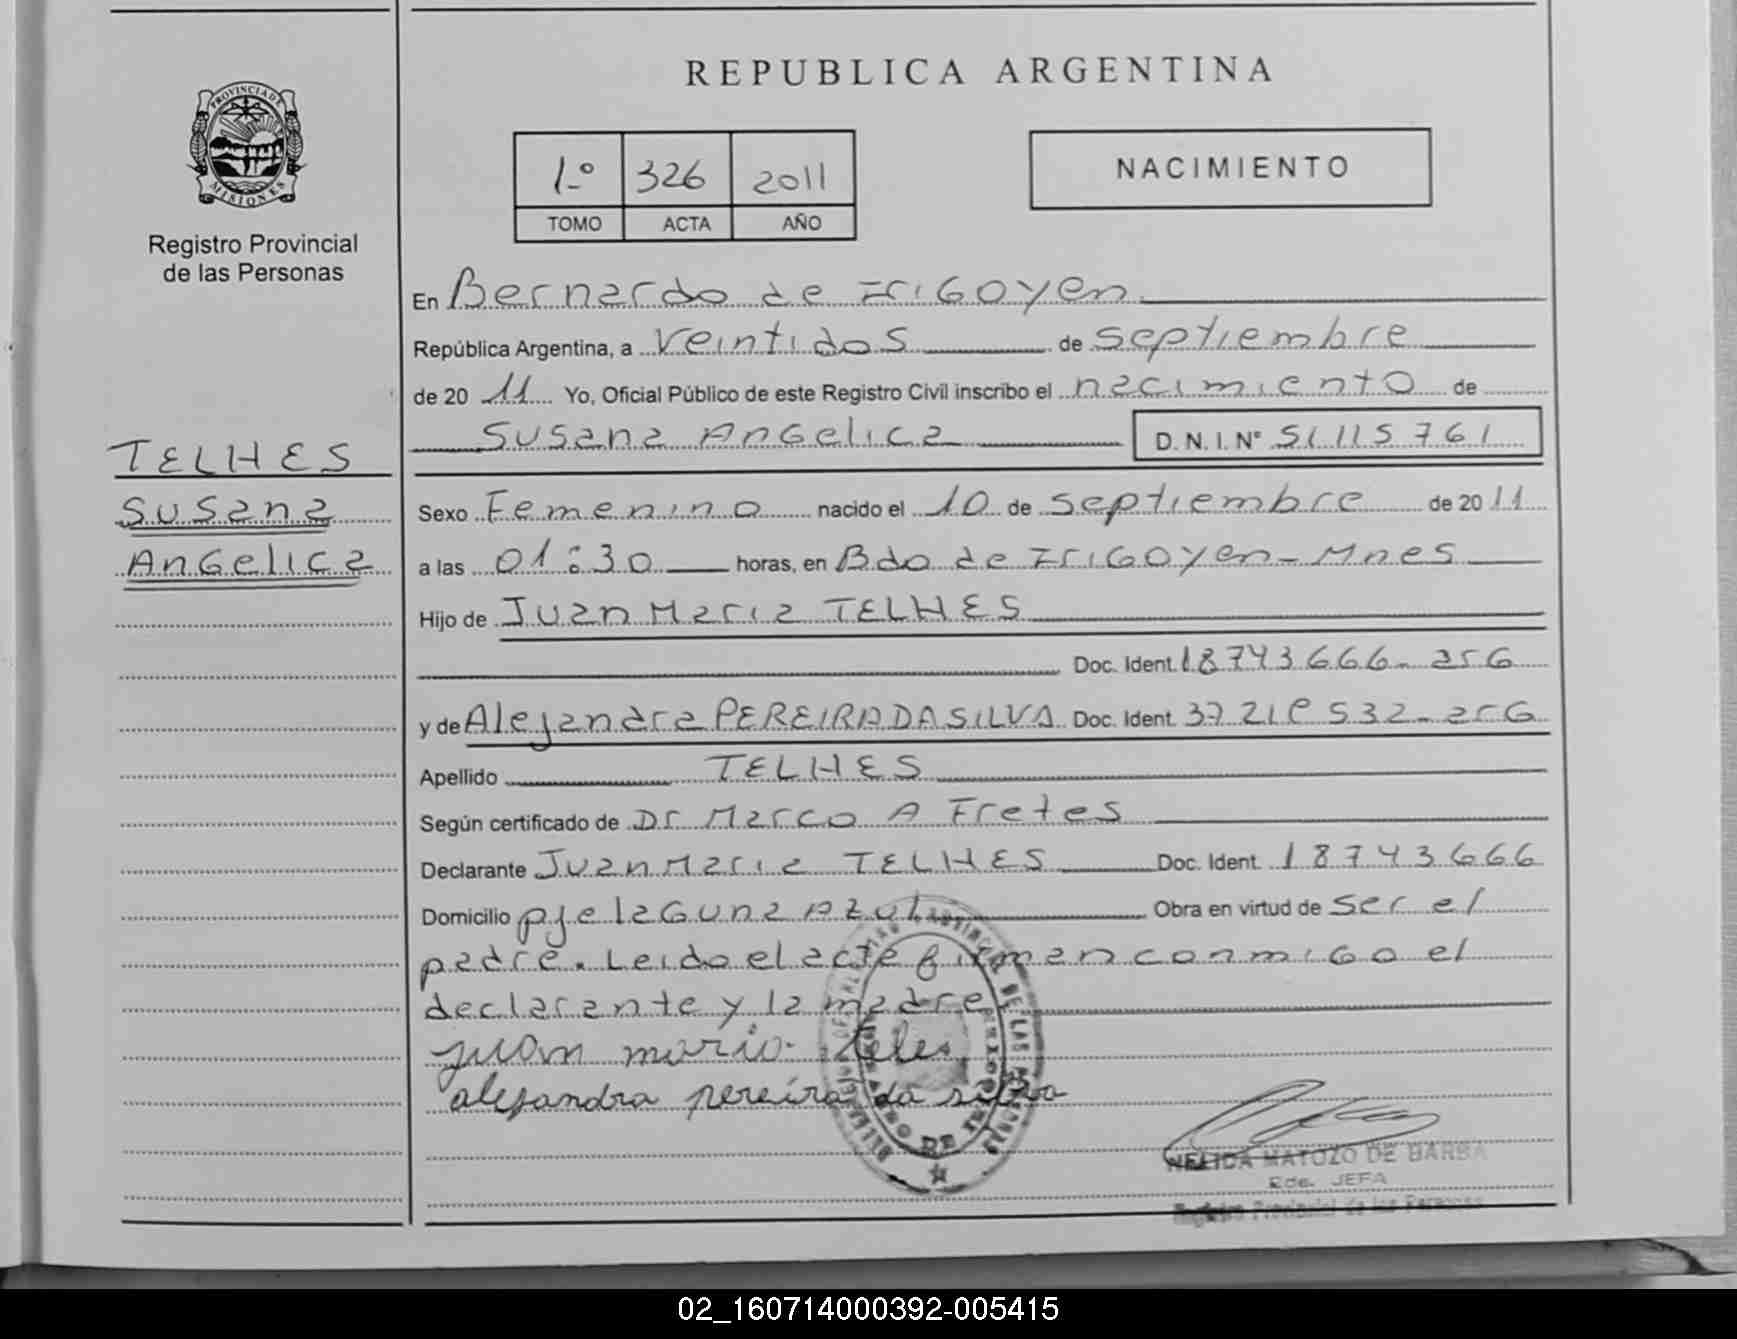 PROVINCIA DE
MISIONES
Registro Provincial
de las Personas
TELHES
Susana
Angelica
REPUBLICA ARGENTINA
1º 326 2011
TOMO ACTA AÑO
NACIMIENTO
En Bernardo de Irigoyen
República Argentina, a veintidos de septiembre
de 20 11 Yo, Oficial Público de este Registro Civil inscribo el nacimiento de
Susana Angelica D. N. I. Nº 51 115 761
Sexo Femenino nacido el 10 de septiembre de 20 11
a las 01:30 horas, en Bdo de Irigoyen - Mnes
Hijo de Juan Maria TELHES
Doc. Ident. 18743666- arg
y de Alejandra PEREIRA DA SILVA Doc. Ident. 532- arg
Apellido TELHES
Según certificado de Dr Marco A Fretes
Declarante Juan Maria TELHES Doc. Ident. 18743666
Domicilio pje laguna Azul Obra en virtud de ser el
padre. Leido el acta firman conmigo el
declarante y la madre
juan mario teles
alejandra pereira da silva
NELIDA MATOZO DE BARBA
Ede. JEFA
Registro Provincial de las Personas
02_160714000392-005415